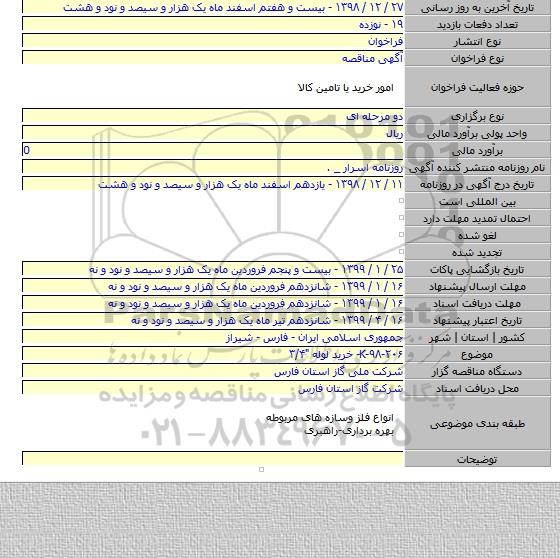 تاریخ آخرین به روز رسانی ۲۷ / ۱۲ / ۱۳۹۸ - بیست و هفتم اسفند ماه یک هزار و سیصد و نود و هشت
تعداد دفعات بازدید ۱۹ - نوزده
نوع انتشار فراخوان
نوع فراخوان آگهی مناقصه
حوزه فعالیت فراخوان امور خرید یا تامین کالا
نوع برگزاری دو مرحله ای
واحد پولی برآورد مالی ریال
برآورد مالی 0
نام روزنامه منتشر کننده آگهی روزنامه اسرار _ .
تاریخ درج آگهی در روزنامه ۱۱ / ۱۲ / ۱۳۹۸ - یازدهم اسفند ماه یک هزار و سیصد و نود و هشت
بین المللی است
احتمال تمدید مهلت دارد
لغو شده
تجدید شده
تاریخ بازگشایی پاکات ۲۵ / ۱ / ۱۳۹۹ - بیست و پنجم فروردین ماه یک هزار و سیصد و نود و نه
مهلت ارسال پیشنهاد ۱۶ / ۱ / ۱۳۹۹ - شانزدهم فروردین ماه یک هزار و سیصد و نود و نه
مهلت دریافت اسناد ۱۶ / ۱ / ۱۳۹۹ - شانزدهم فروردین ماه یک هزار و سیصد و نود و نه
تاریخ اعتبار پیشنهاد ۱۶ / ۴ / ۱۳۹۹ - شانزدهم تیر ماه یک هزار و سیصد و نود و نه
کشور | استان | شهر جمهوری اسلامی ایران - فارس - شیراز
موضوع K-۹۸-۲۰۶- خرید لوله "۳/۴
دستگاه مناقصه گزار شرکت ملی گاز استان فارس
محل دریافت اسناد شرکت گاز استان فارس
طبقه بندی موضوعی انواع فلز وسازه های مربوطه
بهره برداری-راهبری
توضیحات
ParsNamadData
پایگاه اطلاع رسانی مناقصه و مزایده
۰۲۱-۸۸۳۴۹۶۷۰-۵